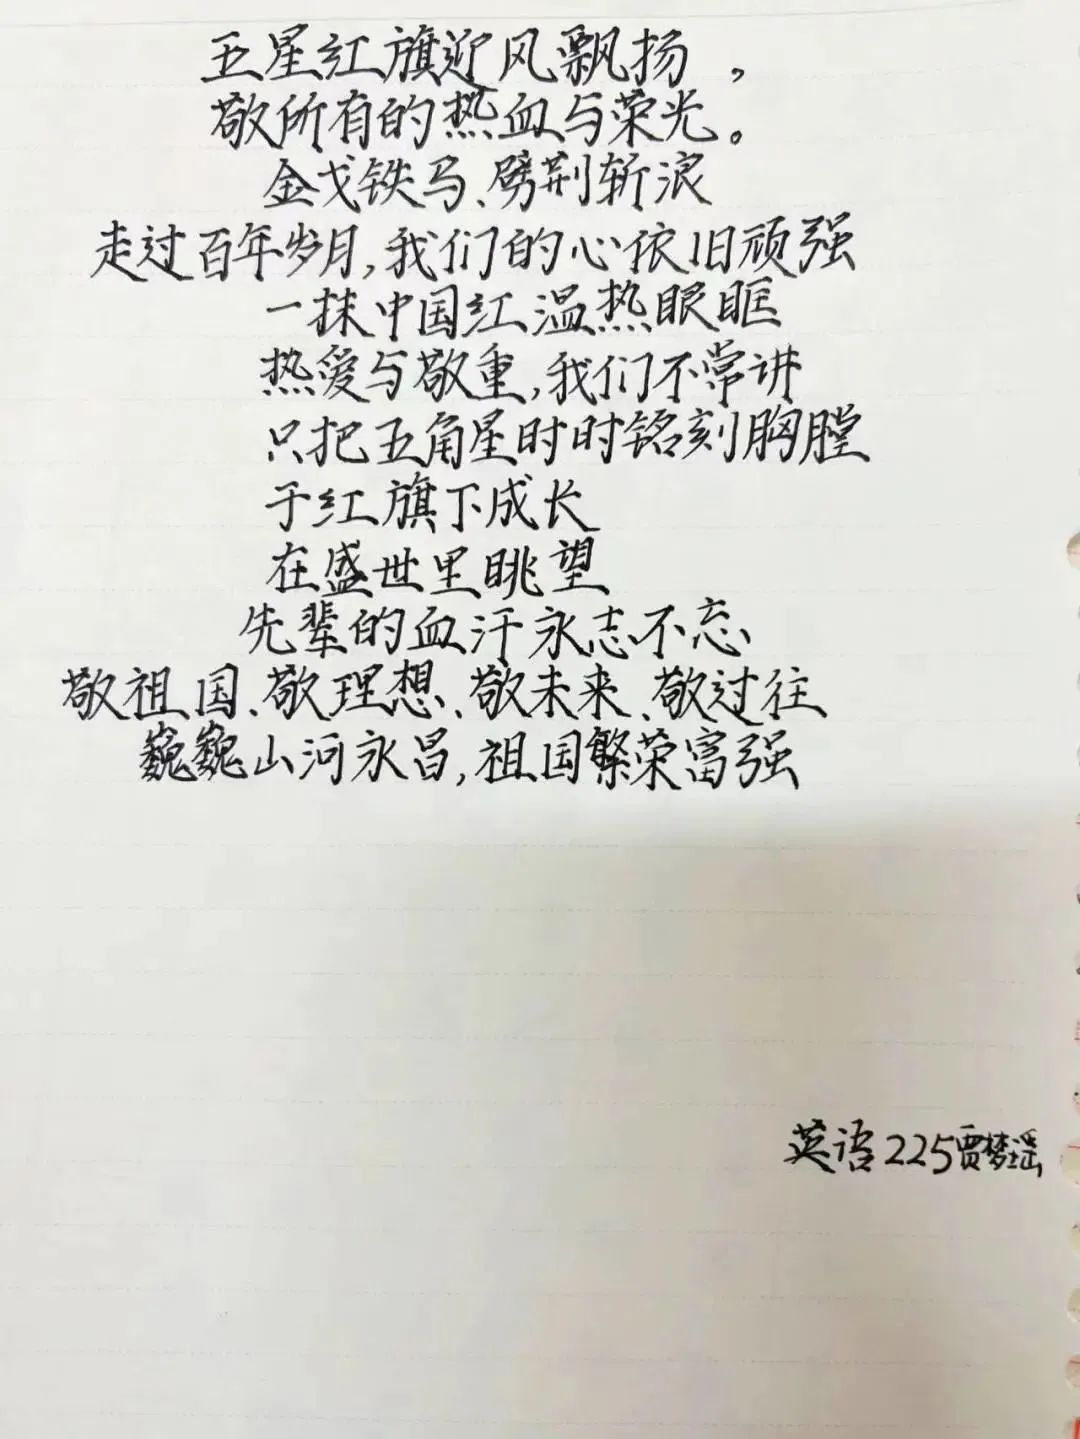 五星红旗迎风飘扬，
敬所有的热血与荣光。
金戈铁马、劈荆斩浪
走过百年岁月,我们的心依旧顽强
一抹中国红温热眼眶
热爱与敬重,我们不常讲
只把五角星时时铭刻胸膛
于红旗下成长
在盛世里眺望
先辈的血汗永志不忘
敬祖国、敬理想、敬未来、敬过往
巍巍山河永昌,祖国繁荣富强
英语225贾梦瑶